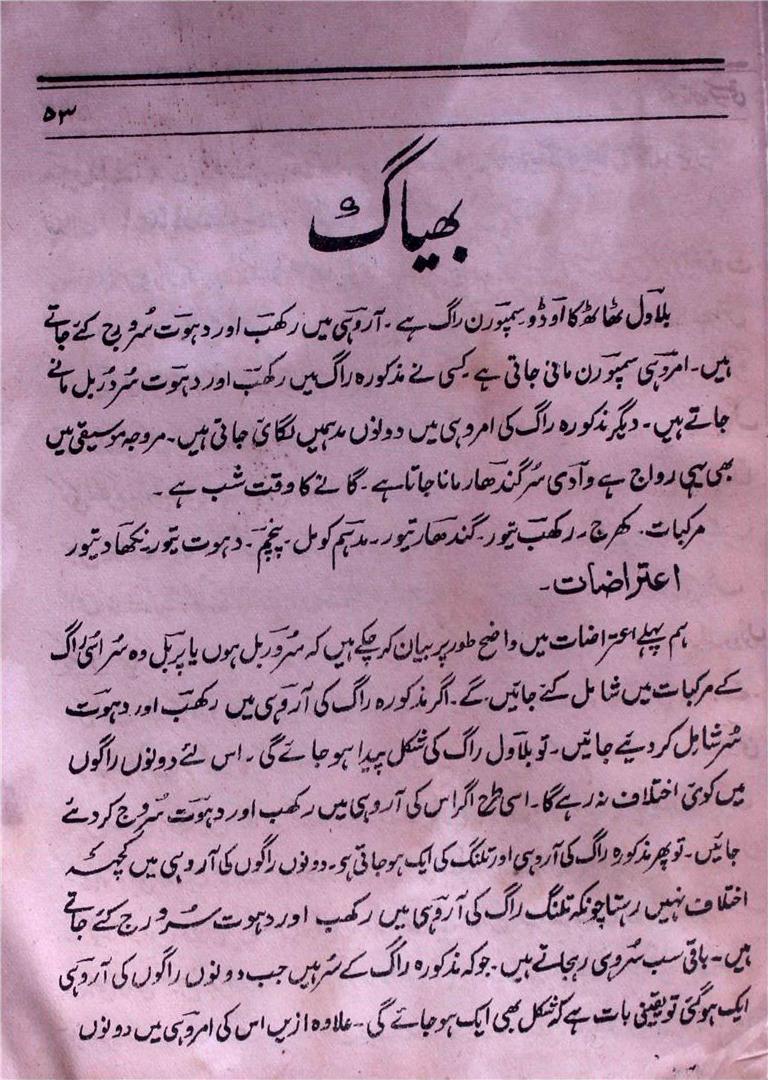 ۵۳
بھیاگ
بلاول ٹھاٹھ کا اوڈو سمپورن راگ ہے ۔ آروہی میں رکھب اور دہوت سُر ورج کئے جاتے
ہیں ۔ امروہی سمپورن مانی جاتی ہے کسی نے مذکورہ راگ میں رکھب اور دہوت سُر دُربل مانے
جاتے ہیں ۔ دیگر مذکورہ راگ کی امروہی میں دونوں مدہمیں لگائی جاتی ہیں ۔ مروجہ موسیقی میں
بھی یہی رواج ہے وآدی سُر گندھار مانا جاتا ہے ۔ گانے کا وقت شب ہے ۔
مرکبات ۔ کھرج ۔ رکھب تیور ۔ گندھار تیور ۔ مدہم کومل ۔ پنچم ۔ دہوت تیور نکھاد تیور
اعتراضات ۔
ہم پہلے اعتراضات میں واضح طور پر بیان کر چکے ہیں کہ سُر دُربل ہوں یا پربل وہ سُر اسی راگ
کے مرکبات میں شامل کئے جائیں گے ۔ اگر مذکورہ راگ کی آروہی میں رکھب اور دہوت
سُر شامل کر دیئے جائیں ۔ تو بلاول راگ کی شکل پیدا ہو جائے گی ۔ اس لئے دونوں راگوں
میں کوئی اختلاف نہ رہے گا ۔ اسی طرح اگر اس کی آروہی میں رکھب اور دہوت سُر ورج کر دئے
جائیں ۔ تو پھر مذکورہ راگ کی آروہی اور تلنگ کی ایک ہو جاتی ہو ۔ دونوں راگوں کی آروہی میں کچھ
اختلاف نہیں رہتا چونکہ تلنگ راگ کی آروہی میں رکھب اور دہوت سُر ورج کئے جاتے
ہیں ۔ باقی سب سُر وہی رہجاتے ہیں ۔ جو کہ مذکورہ راگ کے سُر ہیں جب دونوں راگوں کی آروہی
ایک ہو گئی تو یقینی بات ہے کہ شکل بھی ایک ہو جائے گی ۔ علاوہ ازیں اس کی امروہی میں دونوں